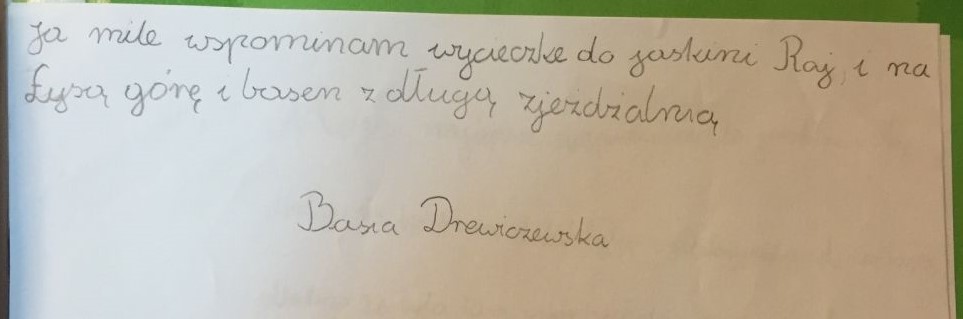 Ja mile wspominam wycieczke do jaskini Raj, i na
Łysą górę i basen z długą zjeżdzalnią
Basia Drewiczewska